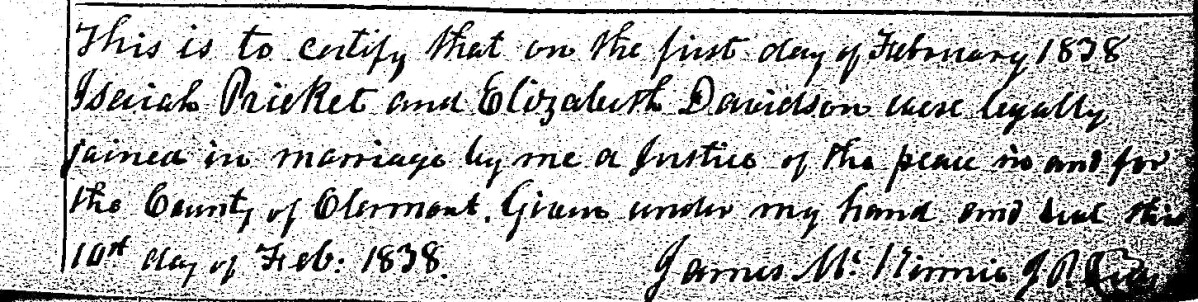 This is to certify that on the first day of February 1838
Isaiah Pricket and Elizabeth Davidson were legally
joined in marriage by me a Justice of the peace in and for
the County of Clermont. Given under my hand and seal this
10th day of Feb: 1838. James Mc Kinnie J P